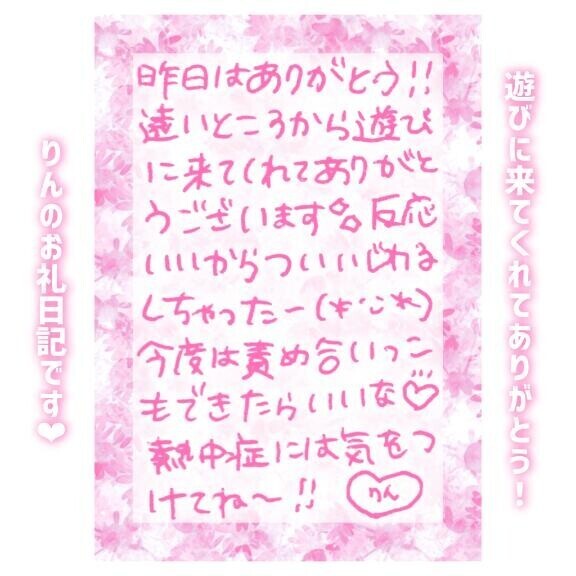 遊びに来てくれてありがとう!
昨日はありがとう!!
遠いところから遊び
に来てくれてありがと
うございます 反応
いいからついいじわる
しちゃったー
今度は責め合いっこ
もできたらいいな♡
熱中症には気をつ
けてね〜!!
りん
りんのお礼日記です❤